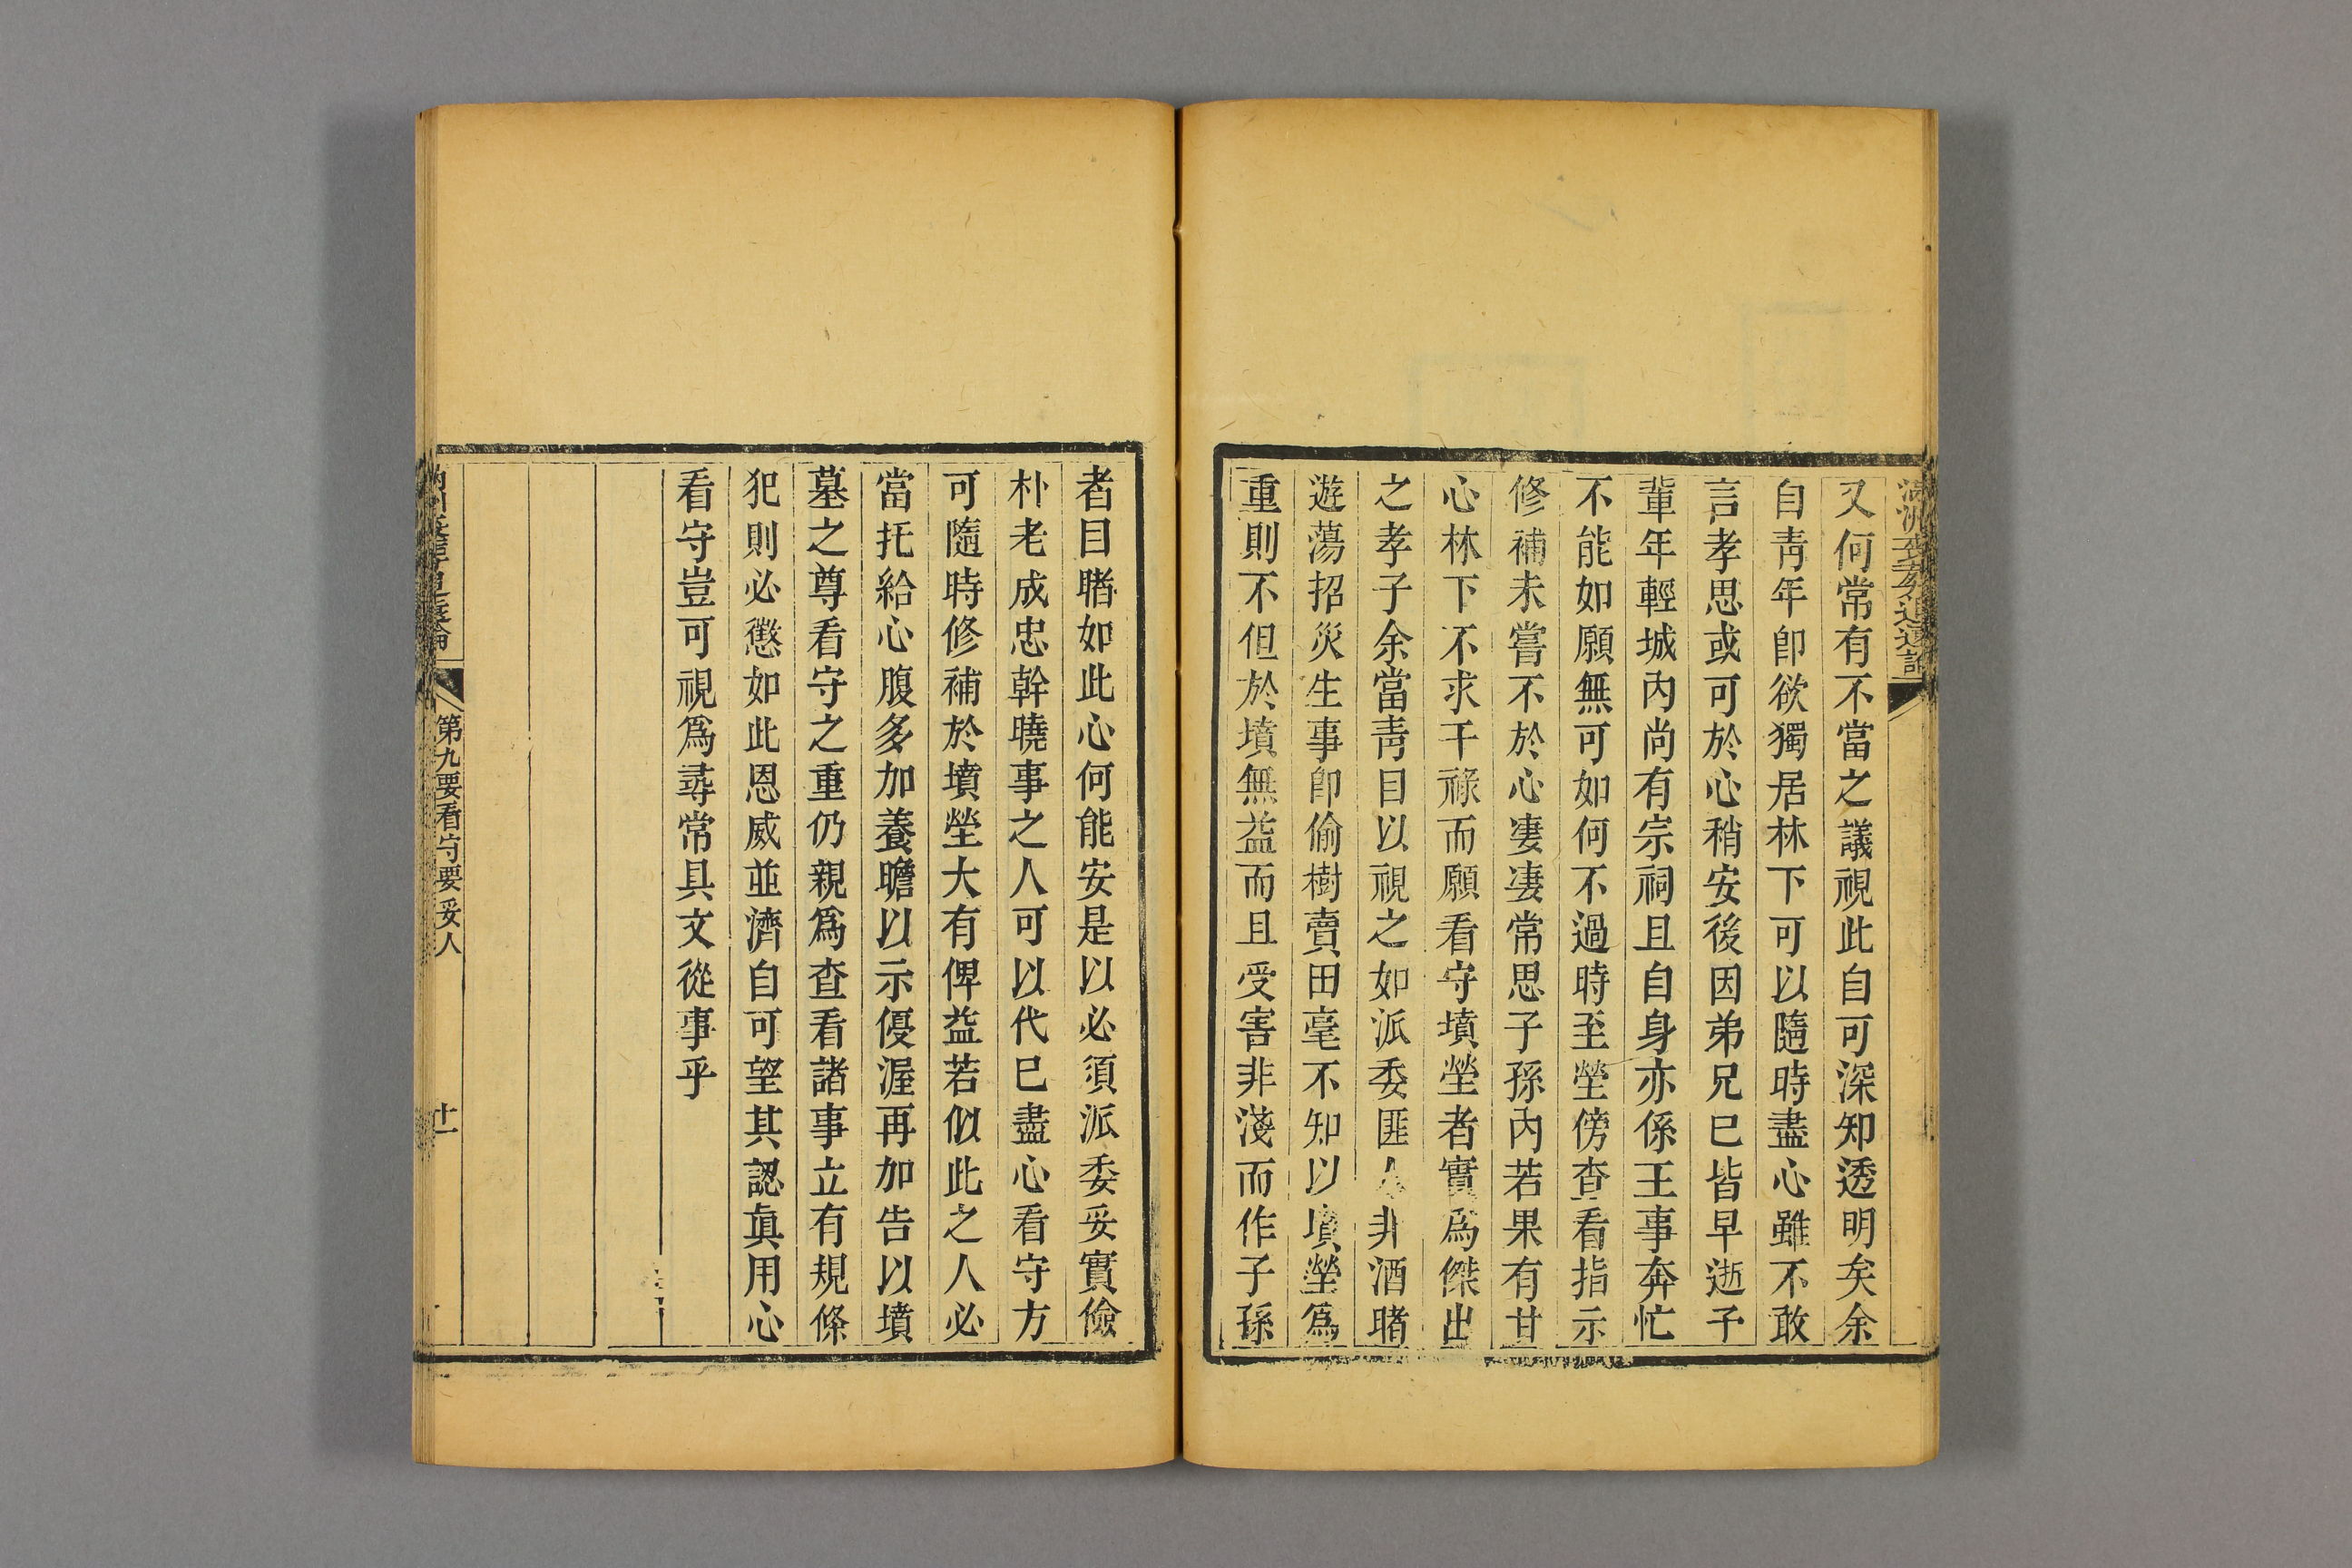 又何常有不當之議視此自可深知透明矣余
自靑年卽欲獨居林下可以隨時盡心雖不敢
言孝思或可於心稍安後因弟兄巳皆早逝子
輩年輕城內尚有宗祠且自身亦係王事奔忙
不能如願無可如何不過時至塋傍查看指示
修補未嘗不於心凄凄常思子孫內若果有甘
心林下不求干祿而願看守墳塋者實爲傑出
之孝子余當靑目以視之如派委匪人非酒賭
遊蕩招災生事卽偷樹賣田毫不知以墳塋爲
重則不但於墳無益而且受害非淺而作子孫
者目睹如此心何能安是以必須派委妥實儉
朴老成忠幹曉事之人可以代巳盡心看守方
可隨時修補於墳塋大有俾益若似此之人必
當托給心腹多加養贍以示優渥再加告以墳
墓之尊看守之重仍親爲查看諸事立有規條
犯則必懲如此恩威並濟自可望其認眞用心
看守豈可視爲尋常具文從事乎
第九要看守要妥人